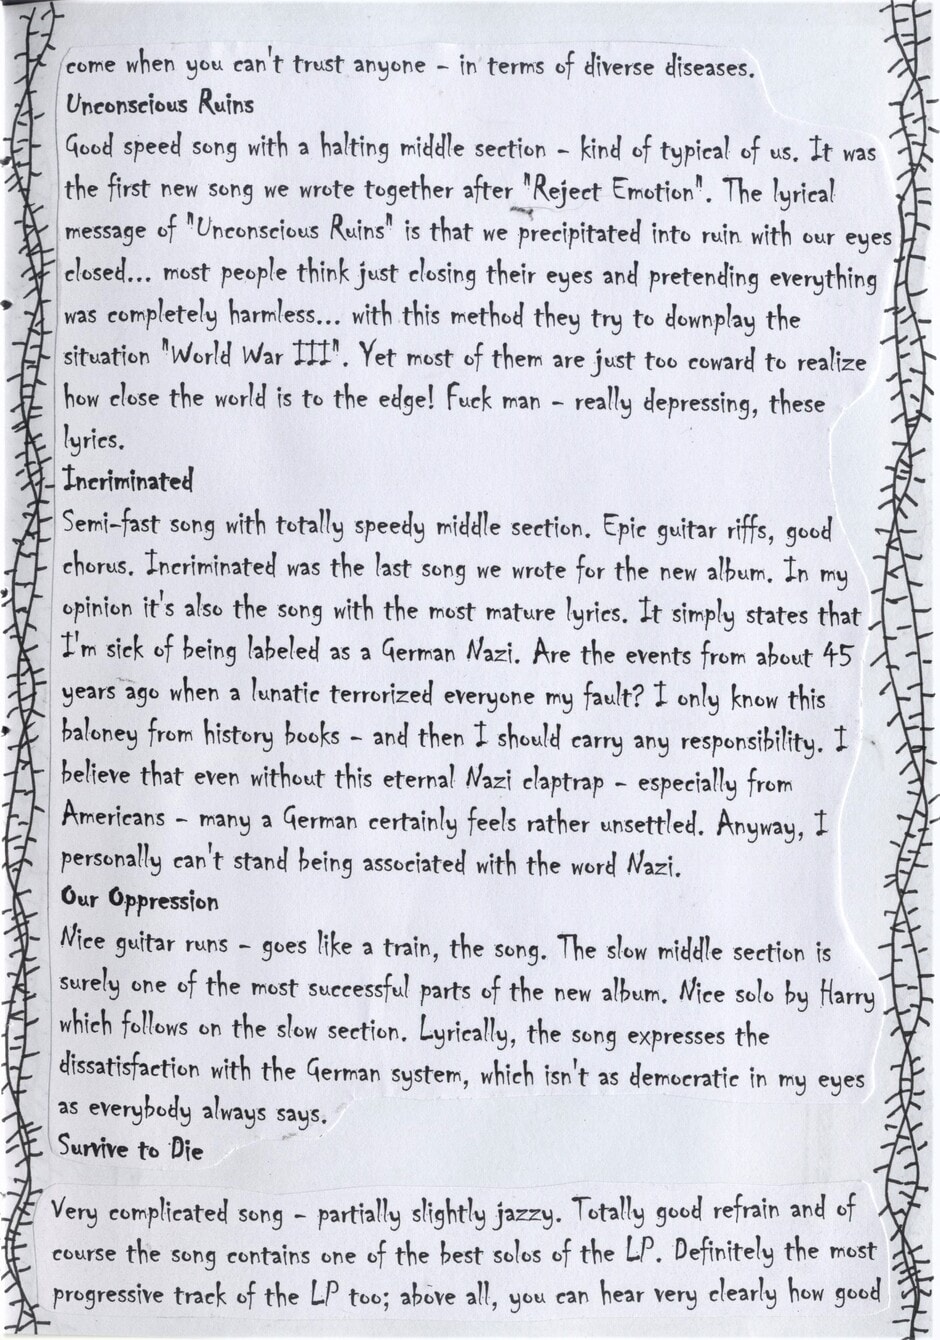 come when you can't trust anyone - in terms of diverse diseases.
Unconscious Ruins
Good speed song with a halting middle section - kind of typical of us. It was
the first new song we wrote together after "Reject Emotion". The lyrical
message of "Unconscious Ruins" is that we precipitated into ruin with our eyes
closed... most people think just closing their eyes and pretending everything
was completely harmless... with this method they try to downplay the
situation "World War III". Yet most of them are just too coward to realize
how close the world is to the edge! Fuck man - really depressing, these
lyrics.
Incriminated
Semi-fast song with totally speedy middle section. Epic guitar riffs, good
chorus. Incriminated was the last song we wrote for the new album. In my
opinion it's also the song with the most mature lyrics. It simply states that
I'm sick of being labeled as a German Nazi. Are the events from about 45
years ago when a lunatic terrorized everyone my fault? I only know this
baloney from history books - and then I should carry any responsibility. I
believe that even without this eternal Nazi claptrap - especially from
Americans - many a German certainly feels rather unsettled. Anyway, I
personally can't stand being associated with the word Nazi.
Our Oppression
Nice guitar runs - goes like a train, the song. The slow middle section is
surely one of the most successful parts of the new album. Nice solo by Harry
which follows on the slow section. Lyrically, the song expresses the
dissatisfaction with the German system, which isn't as democratic in my eyes
as everybody always says.
Survive to Die
Very complicated song - partially slightly jazzy. Totally good refrain and of
course the song contains one of the best solos of the LP. Definitely the most
progressive track of the LP too; above all, you can hear very clearly how good